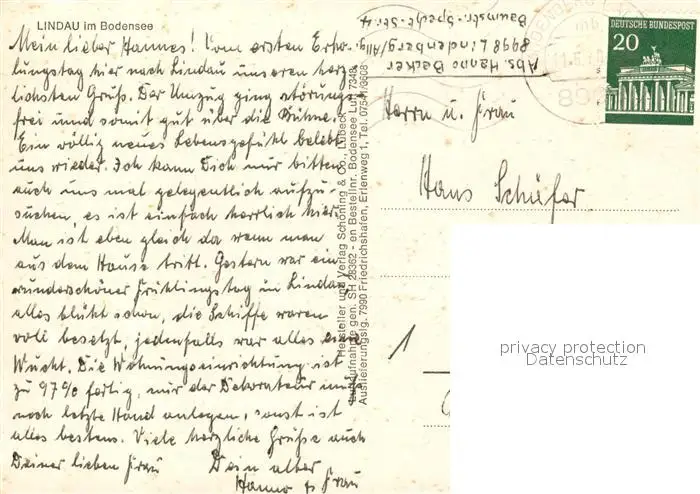 LINDAU im Bodensee
Mein lieber Hannes! Vom ersten Erho-
lungstag hier nach Lindau unseren herz-
lichsten Gruß. Der Umzug ging störungs-
frei und somit gut über die Bühne.
Ein völlig neues Lebensgefühl belebt
uns wieder. Ich kann Dich nur bitten
auch uns mal gelegentlich aufzu-
suchen, es ist einfach herrlich hier.
Man ist eben gleich da wenn man
aus dem Hause tritt. Gestern war ein
wunderschöner Frühlingstag in Lindau,
alles blüht schon, die Schiffe waren
voll besetzt, jedenfalls war alles eine
Wucht. Die Wohnungseinrichtung ist
zu 97% fertig, nur der Dekorateur muß
noch letzte Hand anlegen, sonst ist
alles bestens. Viele herzliche Grüße auch
Deiner lieben Frau Dein alter
Hanno & Frau
Hersteller und Verlag Schöning & Co., Lübeck
Luftaufnahme gen. SH 28362 - en Bestellnr. Bodensee Lu 7348
Auslieferungslg. 7990 Friedrichshafen, Erlenweg 1, Tel. 07541/3608
Abs. Hanno Becker
8998 Lindenberg/Allg.
Baumstr.-Specht-Str. 4
DEUTSCHE BUNDESPOST
20
Herrn u. Frau
Hans Schäfer
1
privacy protection
Datenschutz